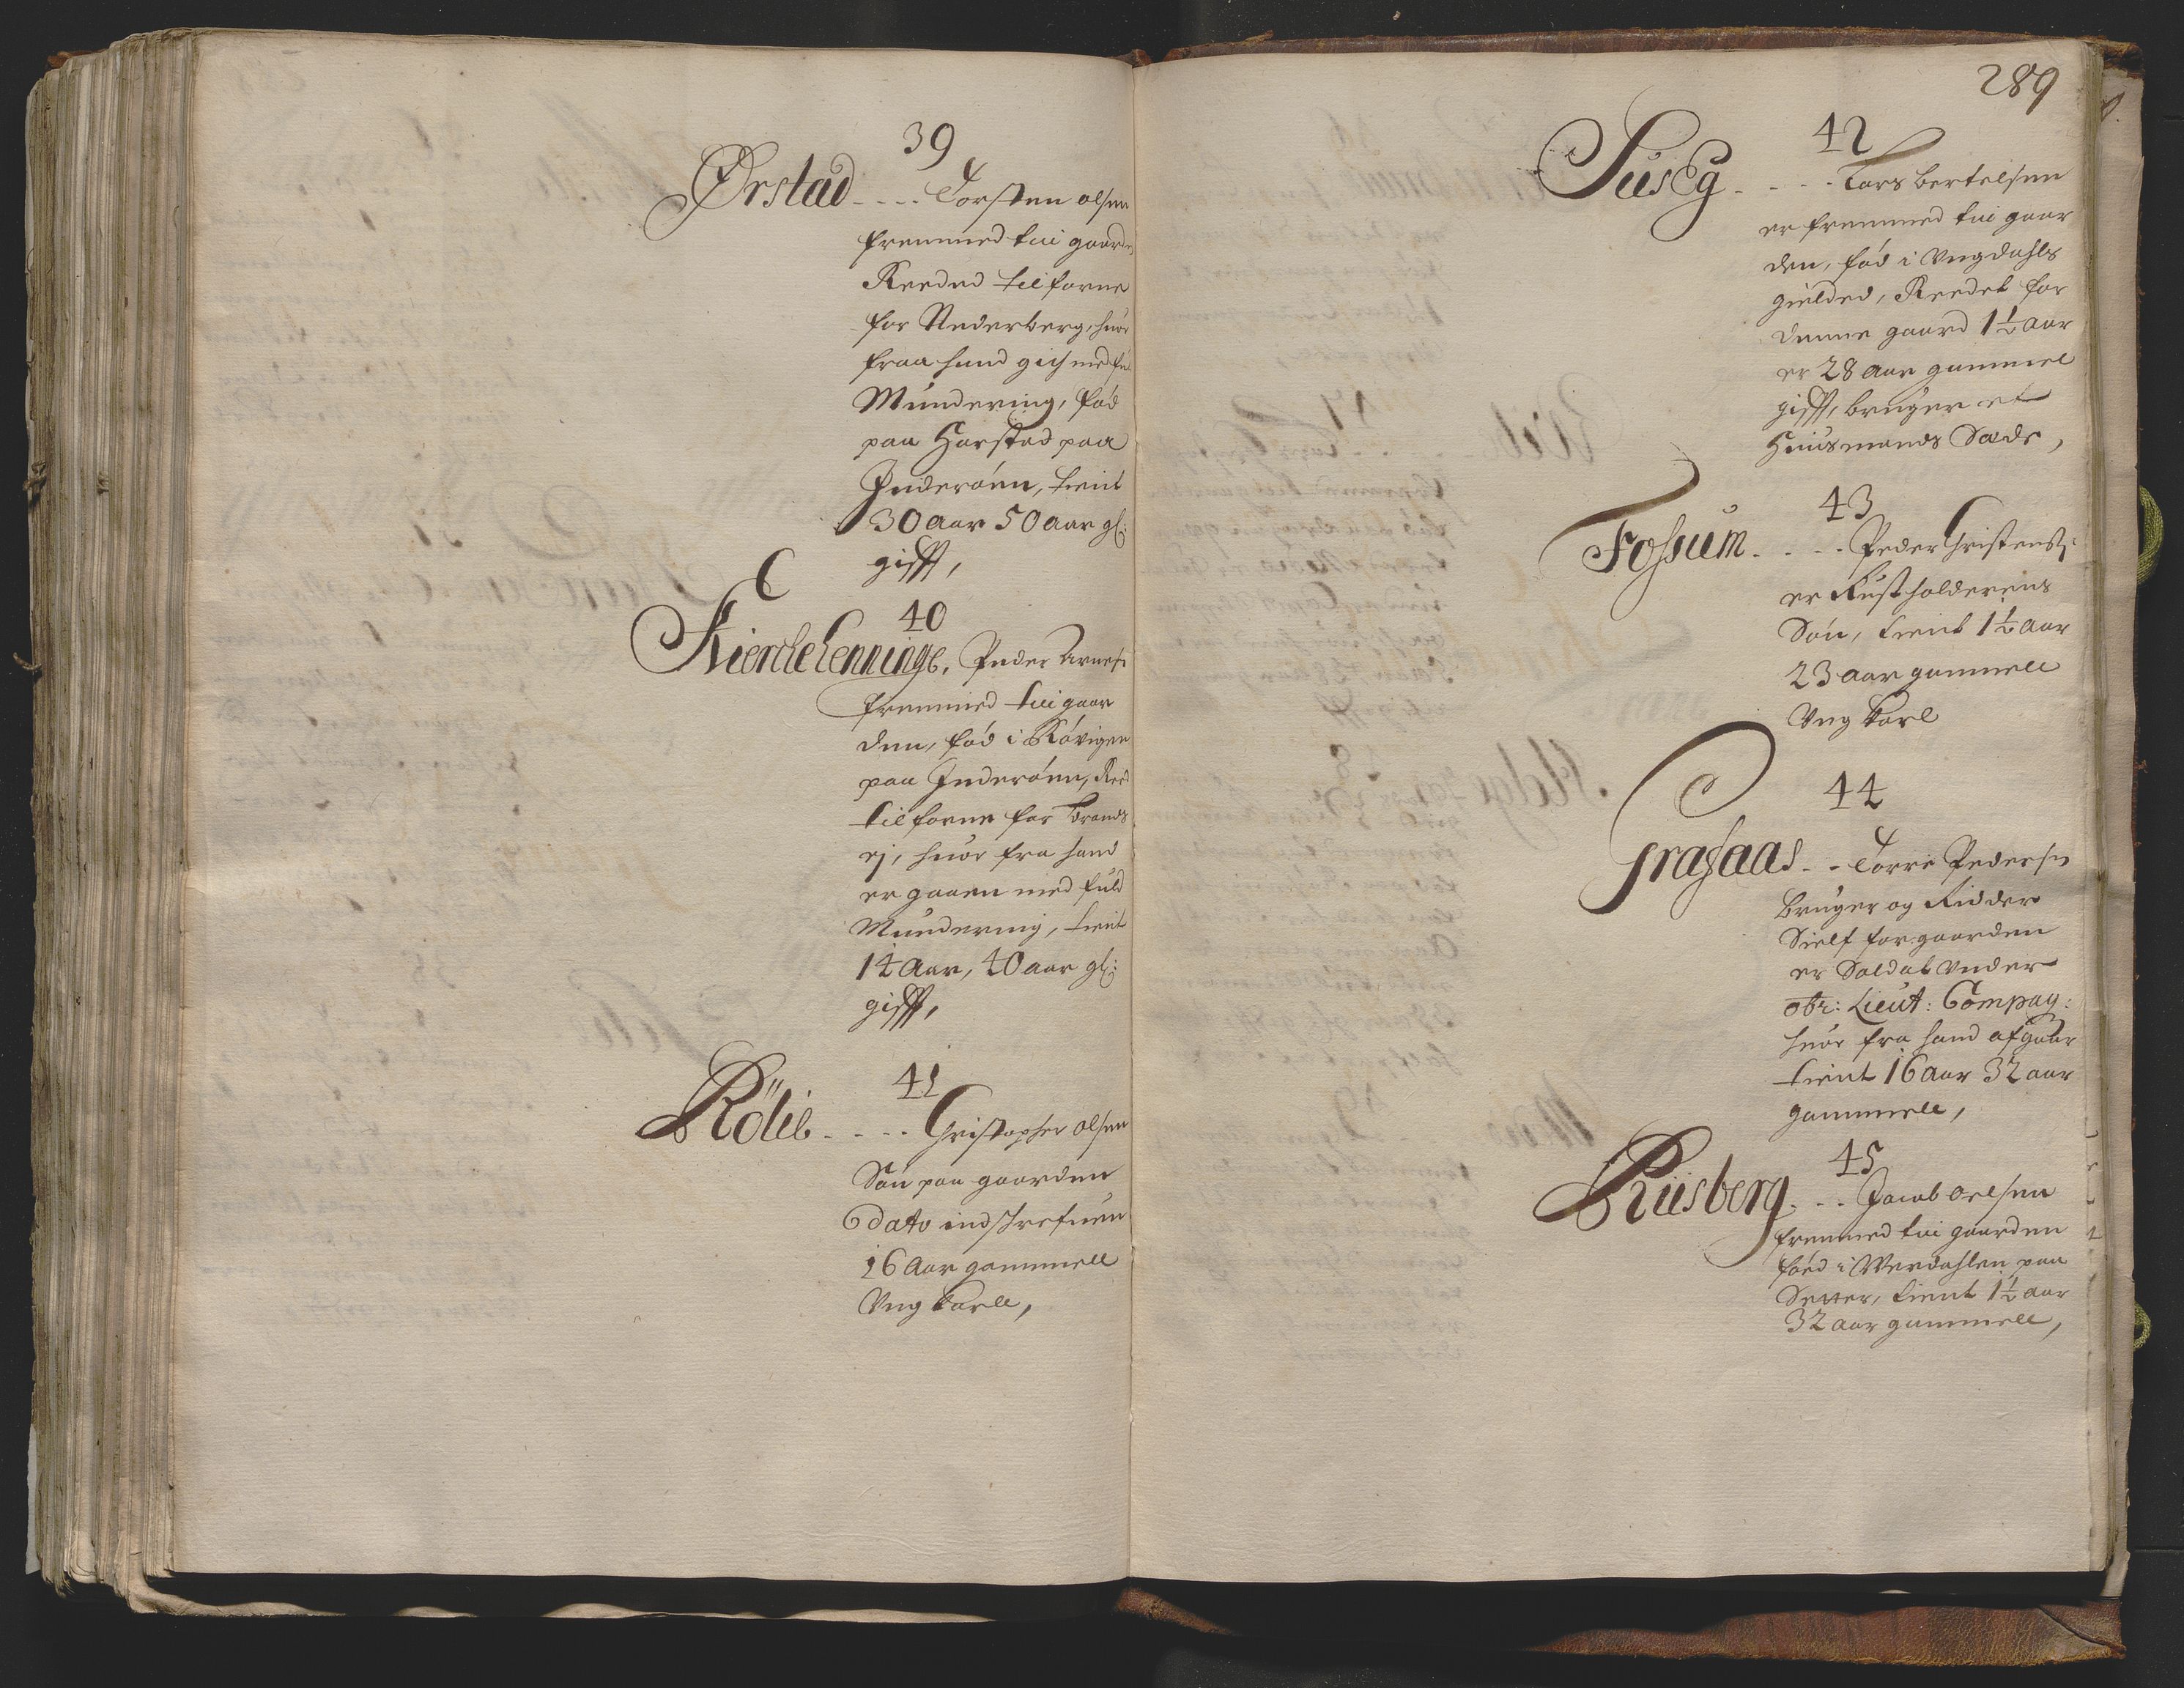 39
Ørstad - - - - Torsten olsen
fremmed tui gaarde
Reeded tilforne
for Nederberg, huor
fraa hand gich med ful
Mundering, fød
paa Harstad paa
Inderøen, tient
30 aar 50 aar gl:
gifft,
40
Kierche Lennings. Peder Arnes:
fremmed tui gaar
den, fød i Røvigen
paa Inderøen, Red
tilforne for
ej, huor fra hand
er gaaen med fuld
Mundering, tient
14 Aar, 40 aar gl:
gifft,
41
Rölis - - - - Christopher olsen
Søn paa gaarden
dato indskrefuen
16 Aar gammell
Ung karll,
289
42
Suseg - - - - Lars bertelsen
er fremmed tui gaar
den, fød i Ungdahls
gielded, Reedet for
denne gaard 1½ aar
er 28 aar gammel
gifft, bruger et
Huusmands Sæde,
43
Fossum - - - - Peder Christens:
er Rustholderens
Søn, tient 1½ aar
23 aar gammell
Ung karl
44
- - Torre Pedersen
bruger og Ridder
Sielf for gaarden
er Soldat under
obr: Lieut: Compag:
huor fra hand afgaar
tient 16 aar 32 aar
gammell,
45
Riisberg - - - Jacob oelsen
fremmed tui gaarden
føed i Werdahlen paa
tient 1½ aar
32 aar gammell,